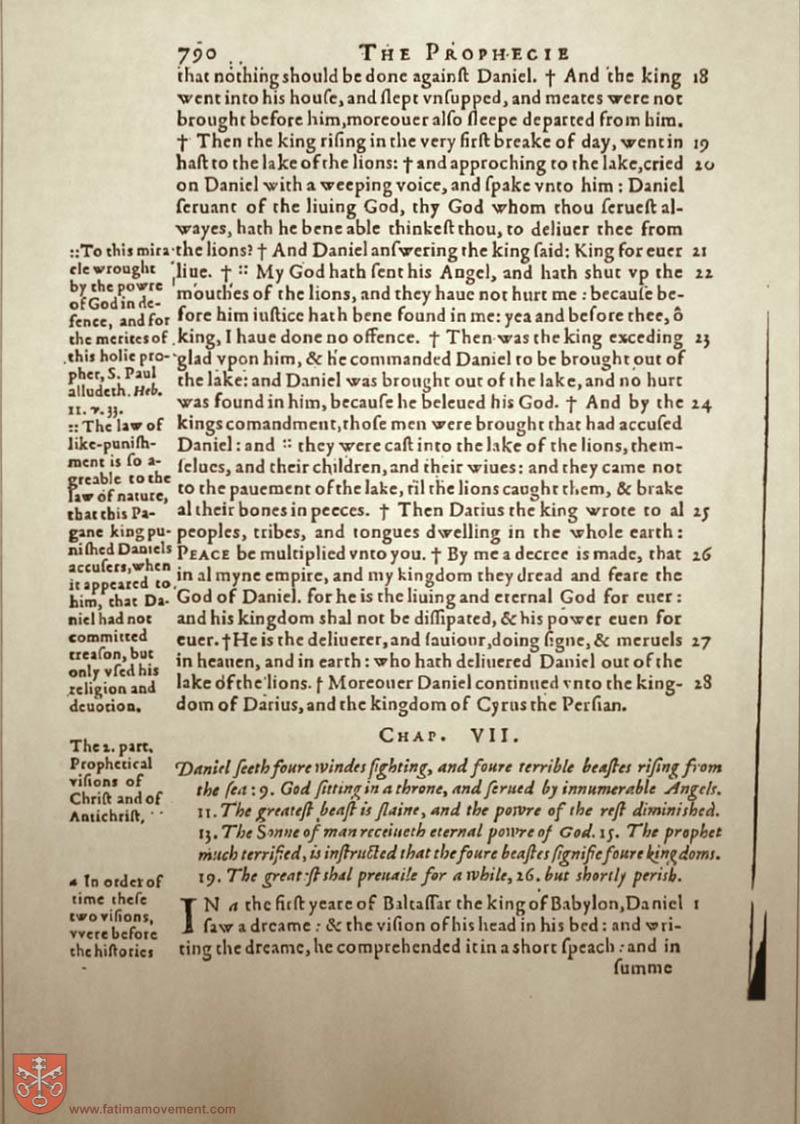 790 THE PROPHECIE
that nothing should be done againſt Daniel. † And the king 18
went into his houſe, and ſlept vnſupped, and meates were not
brought before him, moreouer alſo ſleepe departed from him.
† Then the king riſing in the very firſt breake of day, went in 19
haſt to the lake of the lions: † and approching to the lake, cried 20
on Daniel with a weeping voice, and ſpake vnto him: Daniel
ſeruant of the liuing God, thy God whom thou ſerueſt al-
wayes, hath he bene able thinkeſt thou, to deliuer thee from
the lions? † And Daniel anſwering the king ſaid: King for euer 21
liue. † :: My God hath ſent his Angel, and hath shut vp the 22
mouthes of the lions, and they haue not hurt me: becauſe be-
fore him iuſtice hath bene found in me: yea and before thee, ô
king, I haue done no offence. † Then was the king exceding 23
glad vpon him, & he commanded Daniel to be brought out of
the lake: and Daniel was brought out of the lake, and no hurt
was found in him, becauſe he beleued his God. † And by the 24
kings comandment, thoſe men were brought that had accuſed
Daniel: and :: they were caſt into the lake of the lions, them-
ſelues, and their children, and their wiues: and they came not
to the pauement of the lake, til the lions caught them, & brake
al their bones in peeces. † Then Darius the king wrote to al 25
peoples, tribes, and tongues dwelling in the whole earth:
PEACE be multiplied vnto you. † By me a decree is made, that 26
in al myne empire, and my kingdom they dread and feare the
God of Daniel. for he is the liuing and eternal God for euer:
and his kingdom shal not be diſſipated, & his power euen for
euer. † He is the deliuerer, and ſauiour, doing ſigne, & meruels 27
in heauen, and in earth: who hath deliuered Daniel out of the
lake of the lions. † Moreouer Daniel continued vnto the king- 28
dom of Darius, and the kingdom of Cyrus the Perſian.
:: To this mira-
cle wrought
by the powre
of God in de-
fence, and for
the merites of
this holie pro-
phet, S. Paul
alludeth. Heb.
11. v. 33.
:: The law of
like-puniſh-
ment is ſo a-
greable to the
law of nature,
that this Pa-
gane king pu-
niſhed Daniels
accuſers, when
it appeared to
him, that Da-
niel had not
committed
treaſon, but
only vſed his
religion and
deuotion.
CHAP. VII.
Daniel ſeeth foure windes fighting, and foure terrible beaſtes riſing from
the ſea: 9. God ſitting in a throne, and ſerued by innumerable Angels.
11. The greateſt beaſt is ſlaine, and the powre of the reſt diminished.
13. The Sonne of man receiueth eternal powre of God. 15. The prophet
much terrified, is inſtructed that the foure beaſtes ſignifie foure kingdoms.
19. The greateſt shal preuaile for a while, 26. but shortly perish.
The 2. part.
Prophetical
viſions of
Chriſt and of
Antichriſt.
IN a the firſt yeare of Baltaſſar the king of Babylon, Daniel 1
ſaw a dreame: & the viſion of his head in his bed: and wri-
ting the dreame, he comprehended it in a short ſpeach: and in
ſumme
a In order of
time theſe
two viſions,
vvere before
the hiſtories
www.fatimamovement.com